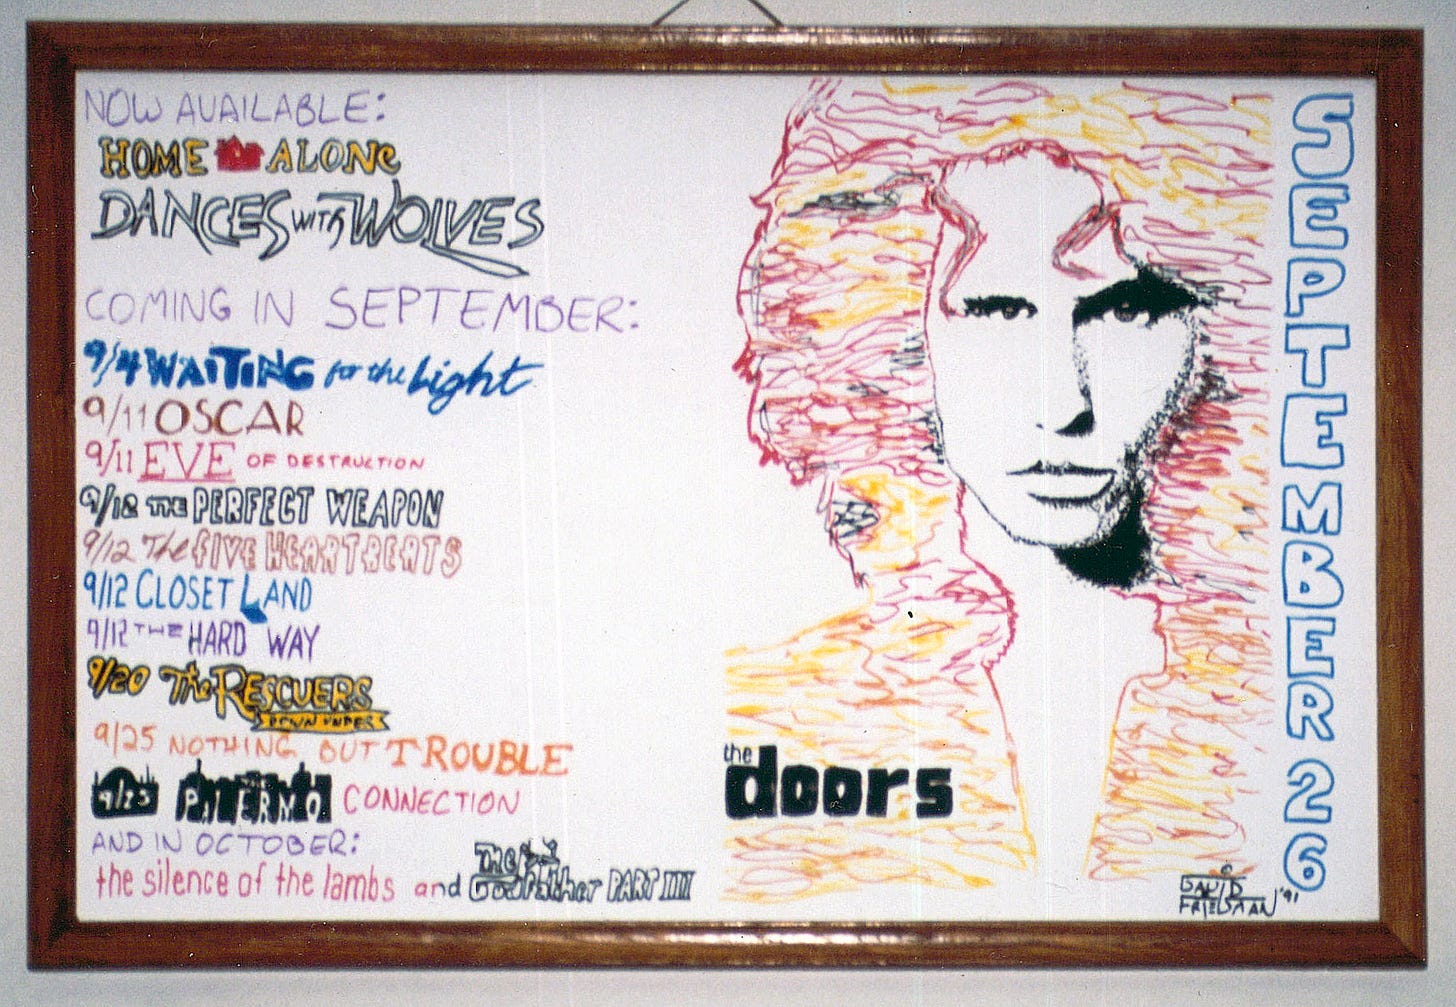 NOW AVAILABLE:
HOME ALONE
DANCES WITH WOLVES
COMING IN SEPTEMBER:
9/4 WAITING for the Light
9/11 OSCAR
9/11 EVE OF DESTRUCTION
9/12 THE PERFECT WEAPON
9/12 The FIVE HEARTBEATS
9/12 CLOSET LAND
9/12 THE HARD WAY
9/20 The RESCUERS
DOWN UNDER
9/25 NOTHING BUT TROUBLE
9/25 PALERMO CONNECTION
AND IN OCTOBER:
the silence of the lambs and The Godfather PART III
the
doors
SEPTEMBER 26
DAVID
FRIEDMAN '91